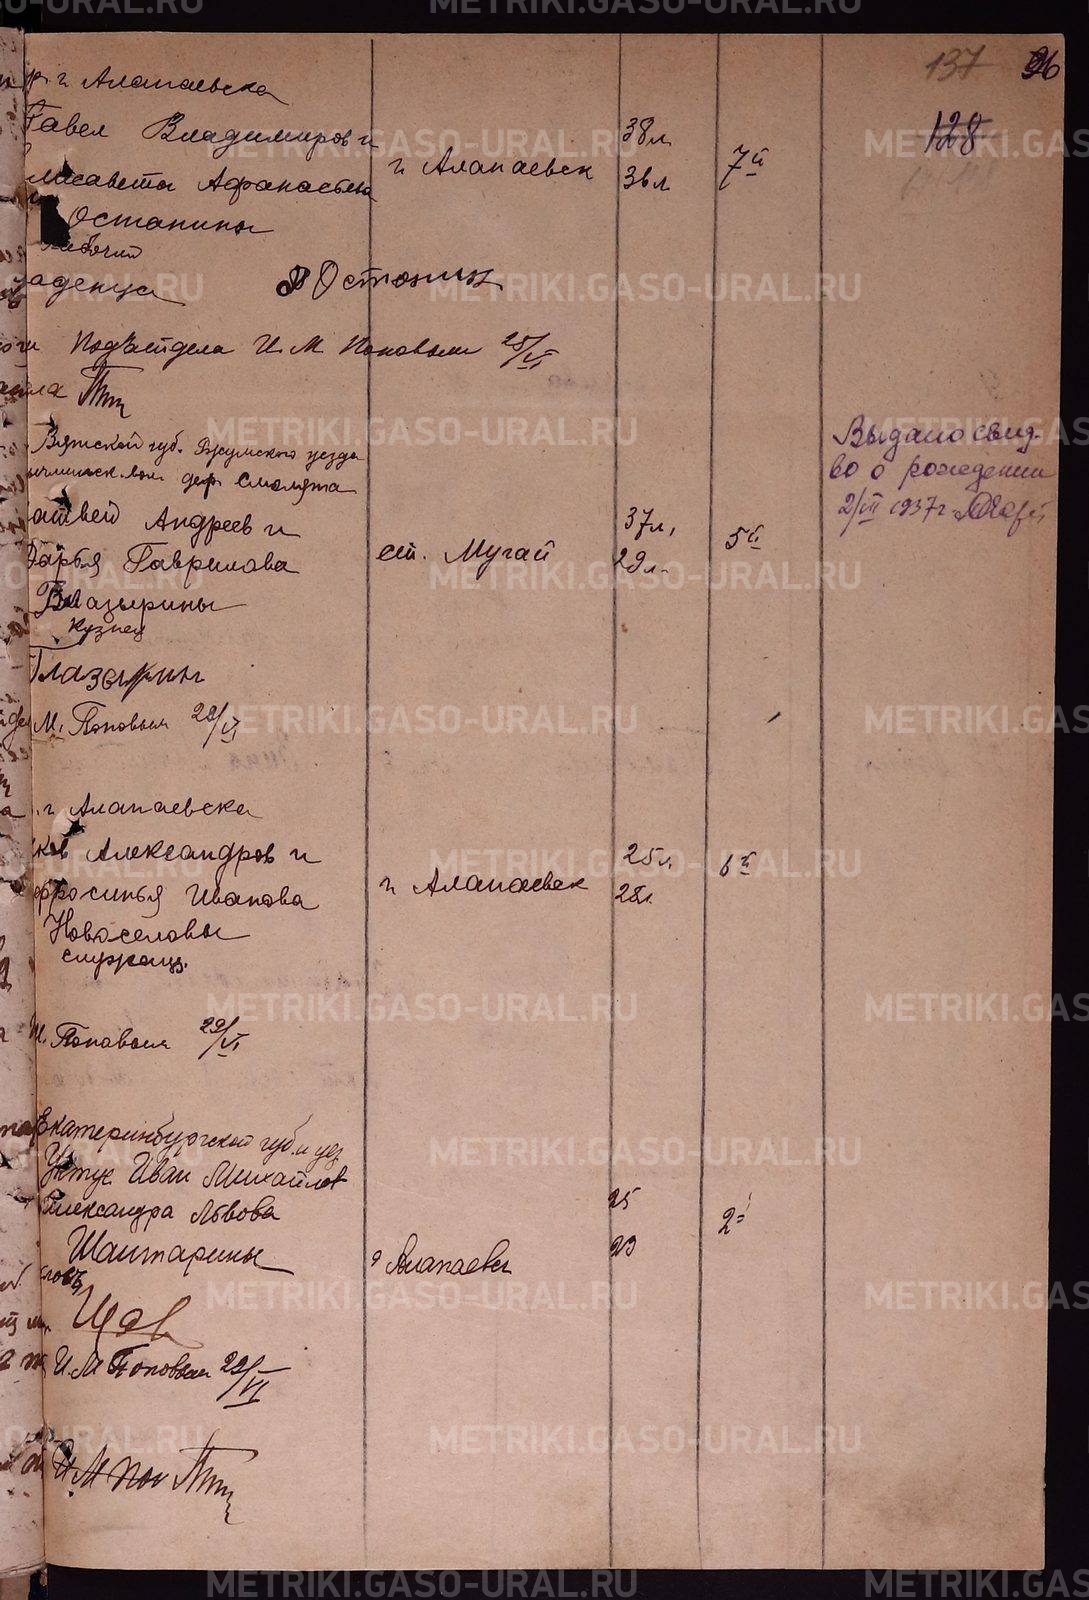 METRIKI.GASO-URAL.RU
137 96
128
гр. г. Алапаевска
Павел Владимиров и
Елисавета Афанасьева
Останины
рабочий
г. Алапаевск
38 л.
36 л.
7й
П Останин
Подъотдела И. М. Поповым 25/VI
Вятской губ. Уржумского уезда
дер. Смолята
Матвей Андреев и
Дарья Гаврилова
Глазырины
кузнец
ст. Мугай
37 л.
29 л.
5й
Выдано свид-
во о рождении
2/VII 1937 г.
Глазырин
М. Поповым 29/VI
г. Алапаевска
Александров и
Ефросинья Иванова
Новоселовы
служащ.
г. Алапаевск
25 л.
28 л.
6й
М. Поповым 29/VI
Екатеринбургской губ. и уез.
Уктус Иван Михайлов
Александра Львова
Шантарины
г Алапаевск
25
23
2й
И. М Поповым 29/VI
И. М